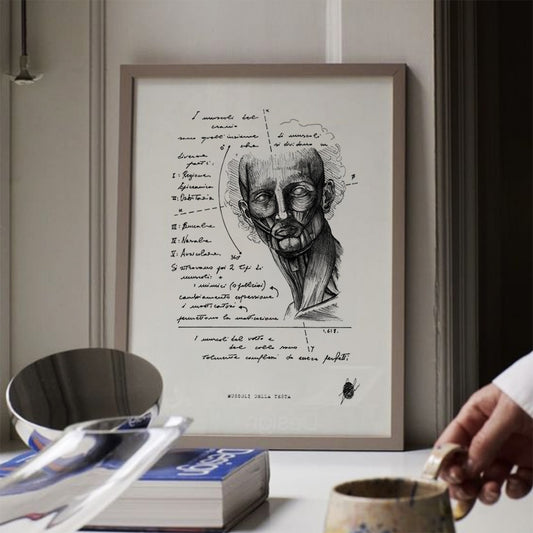 I muscoli del
cranio
sono quell'insieme di muscoli
è che si dividono in
diverse
parti:
I: Regione
Epicranica
II: Orbitaria
III:
IV: Nasale
V: Auricolare.
Si attraverso poi 2 tipi di
muscoli:
i mimici (o pellicciai)
cambiamento espressione
masticatori
permettono la masticazione
360°
x
B
1,618.
I muscoli del volto e
del collo sono
talmente complessi da essere perfetti
y
MUSCOLI DELLA TESTA
Design